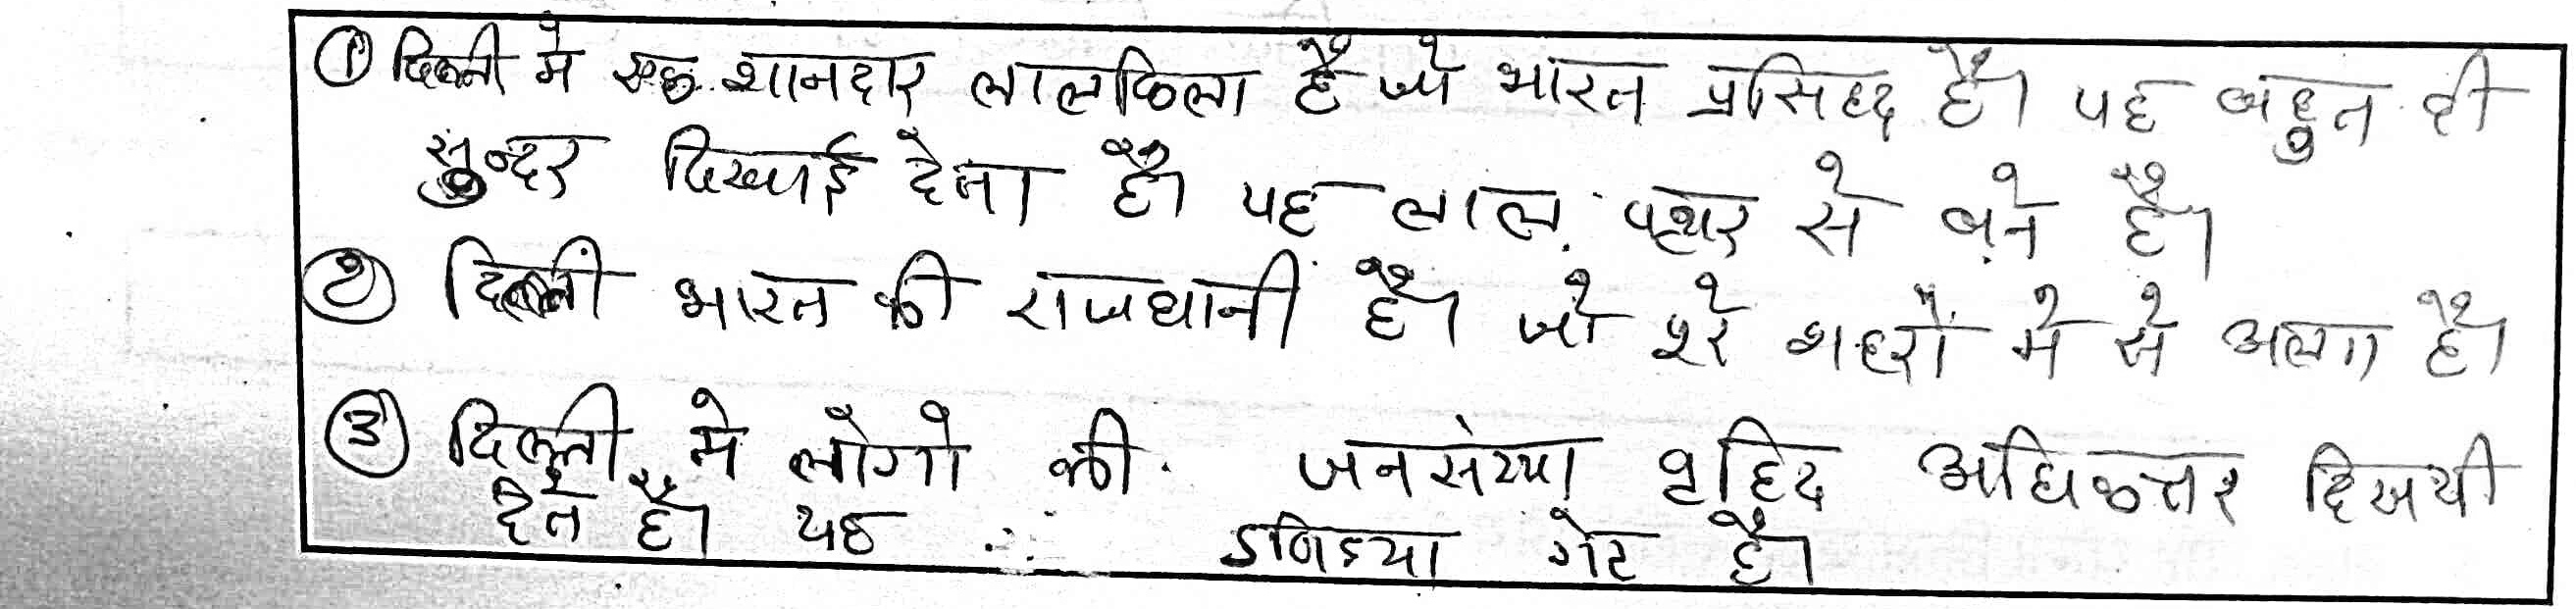 ① दिल्ली मे एक शानदार लालकिला है जो भारत प्रसिध्द है। यह बहुत ही
सुन्दर दिखाई देता है। यह लाल पत्थर से बने है।
② दिल्ली भारत की राजधानी है। जो शहरों मे से अलग है।
③ दिल्ली मे लोगो की जनसंख्या वृध्दि अधिकत्तर दिखयी
देते है। यह इणिड्या गेट है।